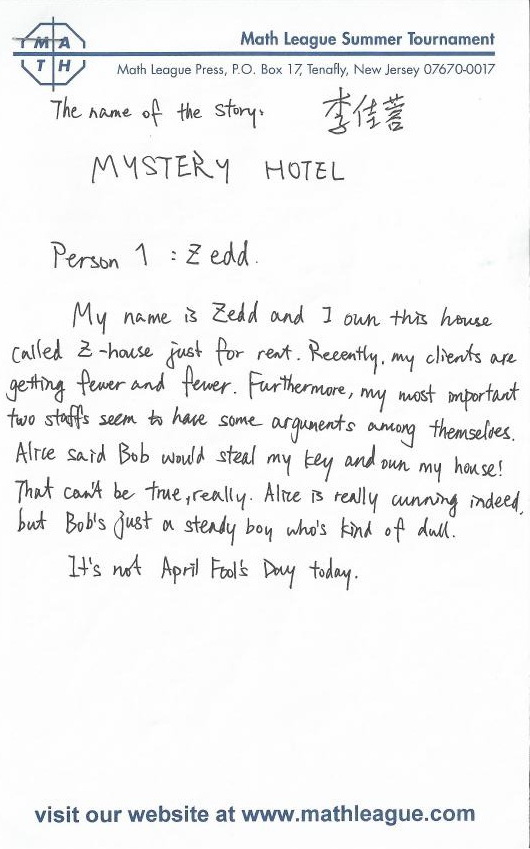 M A
T H
Math League Summer Tournament
Math League Press, P.O. Box 17, Tenafly, New Jersey 07670-0017
The name of the story: 李佳蓉
MYSTERY HOTEL
Person 1 : Zedd.
My name is Zedd and I own this house
called Z-house just for rent. Recently, my clients are
getting fewer and fewer. Furthermore, my most important
two staffs seem to have some arguments among themselves.
Alice said Bob would steal my key and own my house!
That can't be true, really. Alice is really cunning indeed,
but Bob's just a steady boy who's kind of dull.
It's not April Fool's Day today.
visit our website at www.mathleague.com